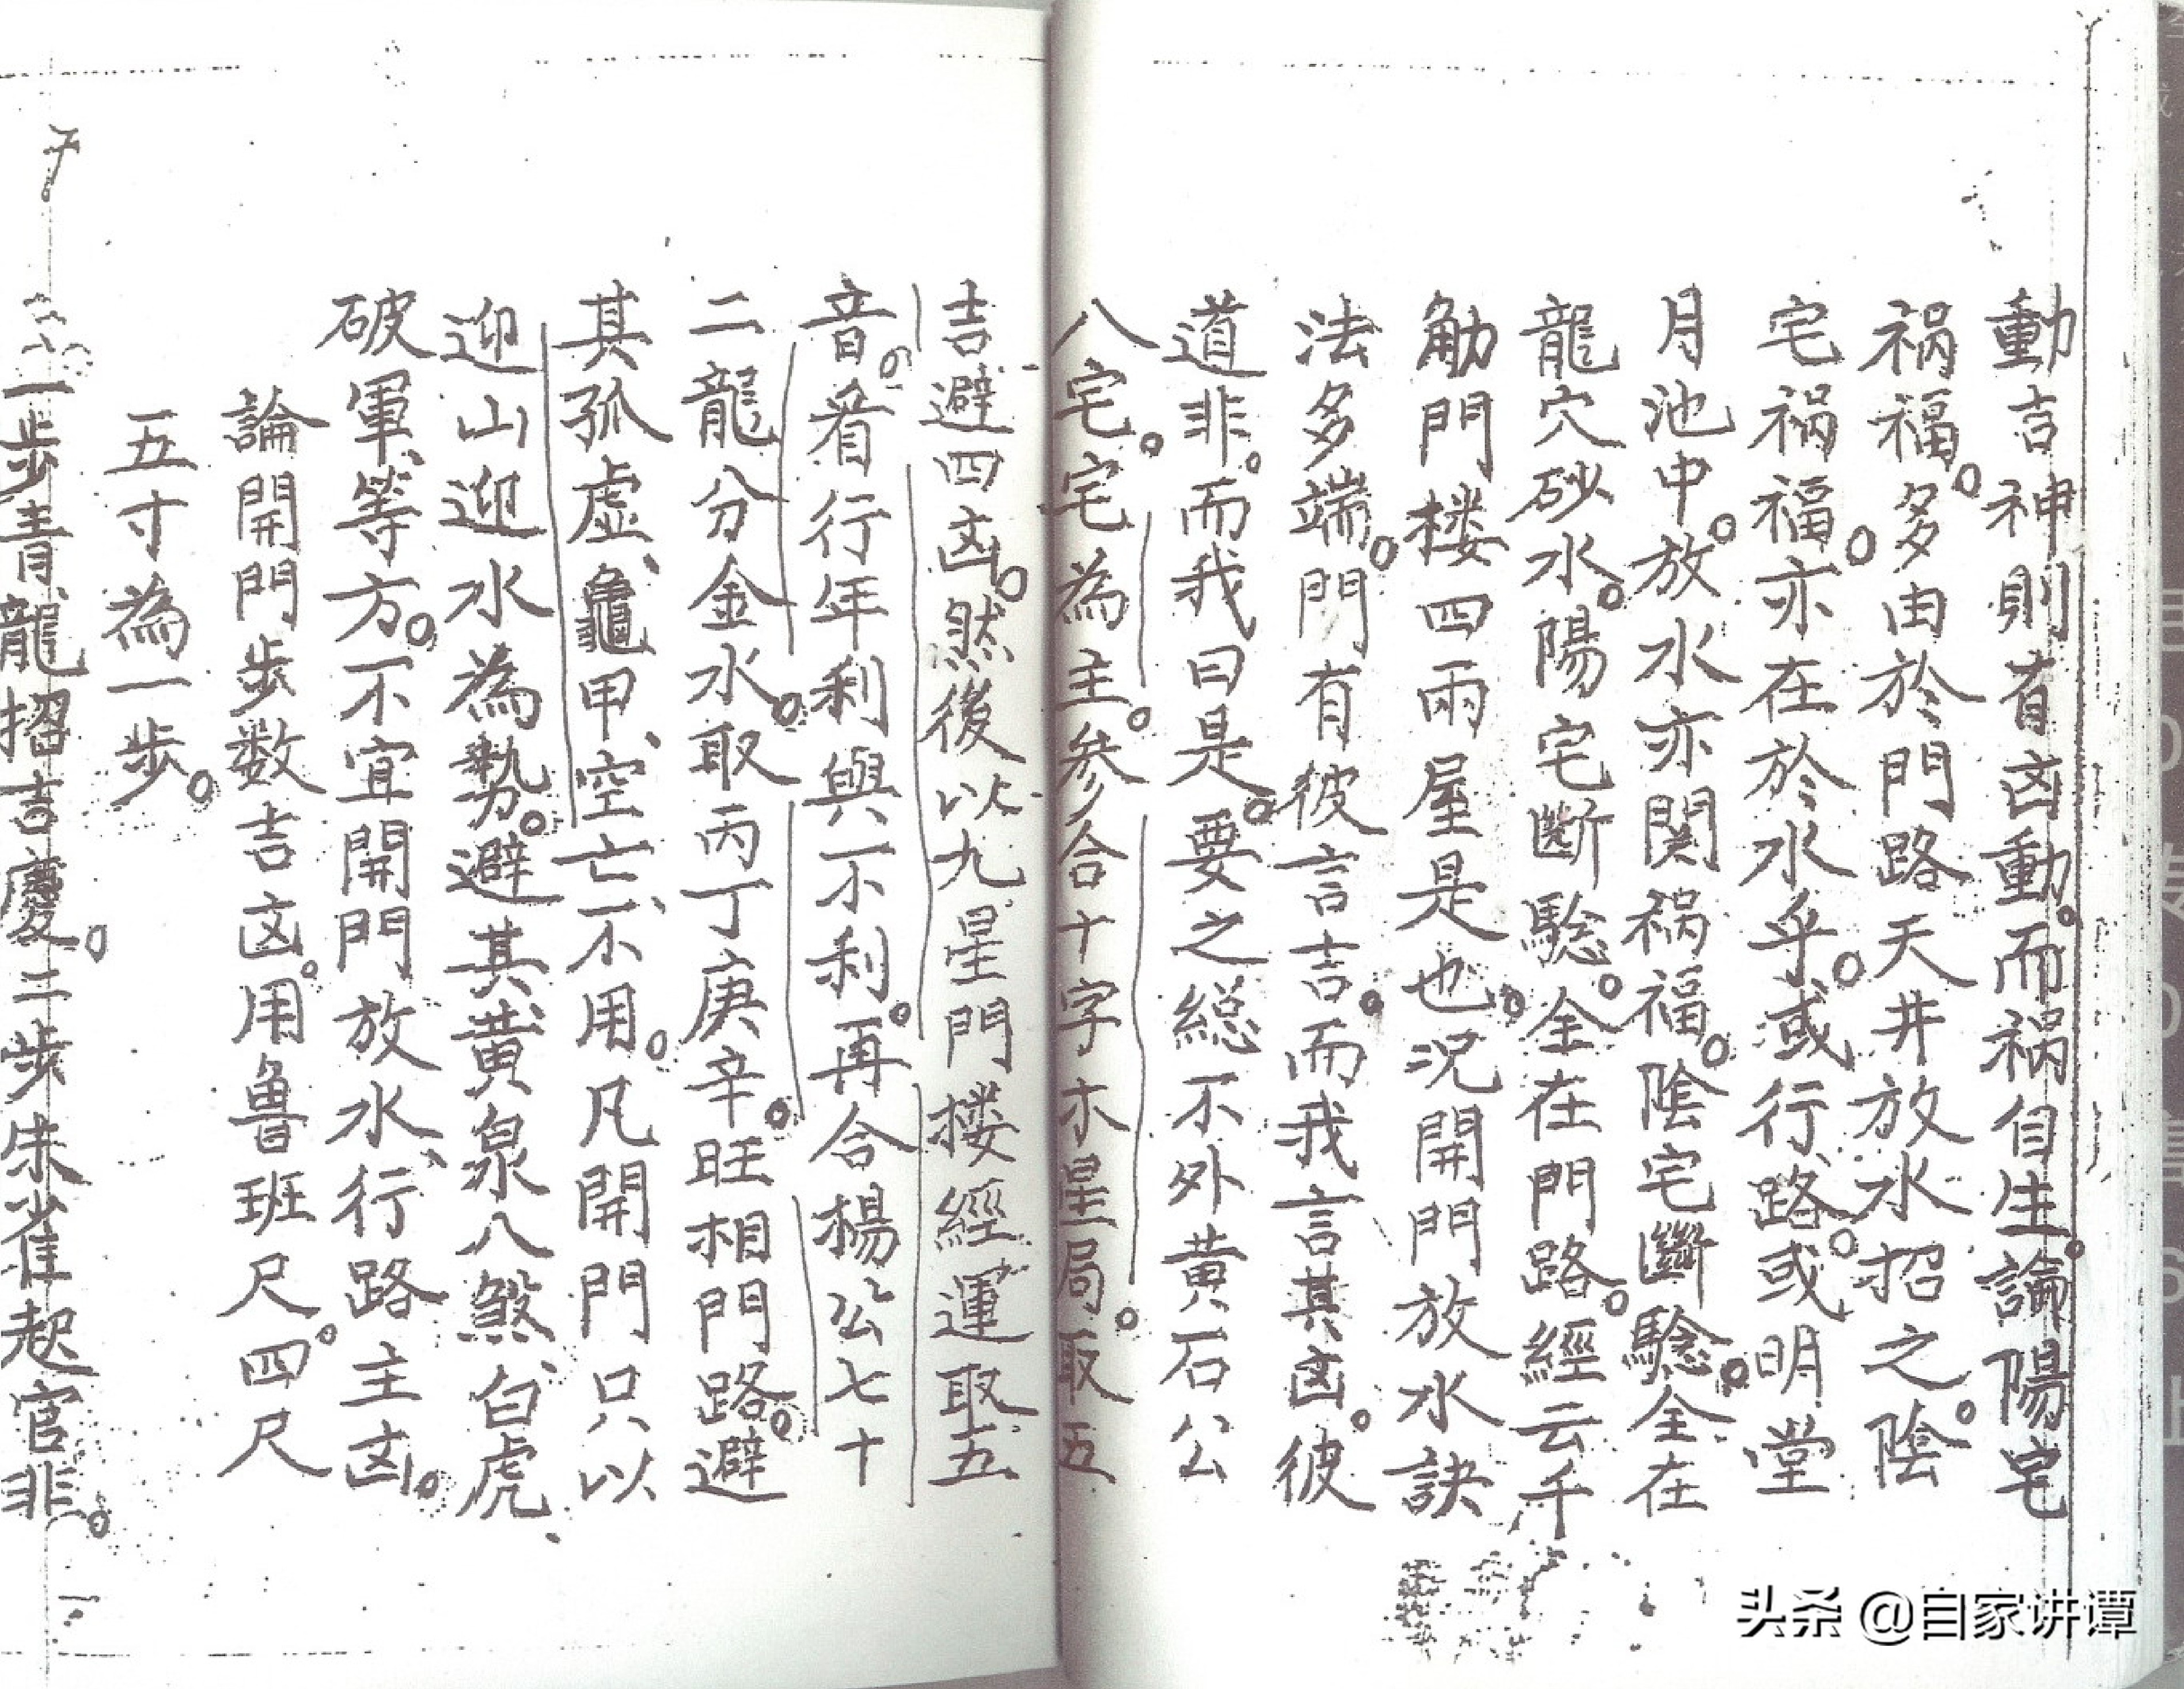 動吉神則有凶動。而祸自生。論陽宅
祸福。多由於門路天井放水招之。陰
宅祸福。亦在於水乎。或行路。或明堂
月池中。放水亦関祸福。陰宅斷驗。全在
龍穴砂水。陽宅斷驗。全在門路。經云千
觔門楼四兩屋是也。况開門放水訣
法多端。門有彼言吉。而我言其凶。彼
道非。而我曰是。要之總不外黄石公
八宅。宅為主。参合十字木星局。取五
吉避四凶。然後以九星門楼經運取五
音。看行年利與不利。再合楊公七十
二龍分金水。取丙丁庚辛。旺相門路。避
其孤虛、龜甲、空亡、不用。凡開門只以
迎山迎水為勢。避其黄泉八煞、白虎、
破軍、等方。不宜開門放水、行路主凶。
論開門步数吉凶。用魯班尺。四尺
五寸為一步。
一步青龍招吉慶。二步朱雀起官非。
头条 @自家讲谭